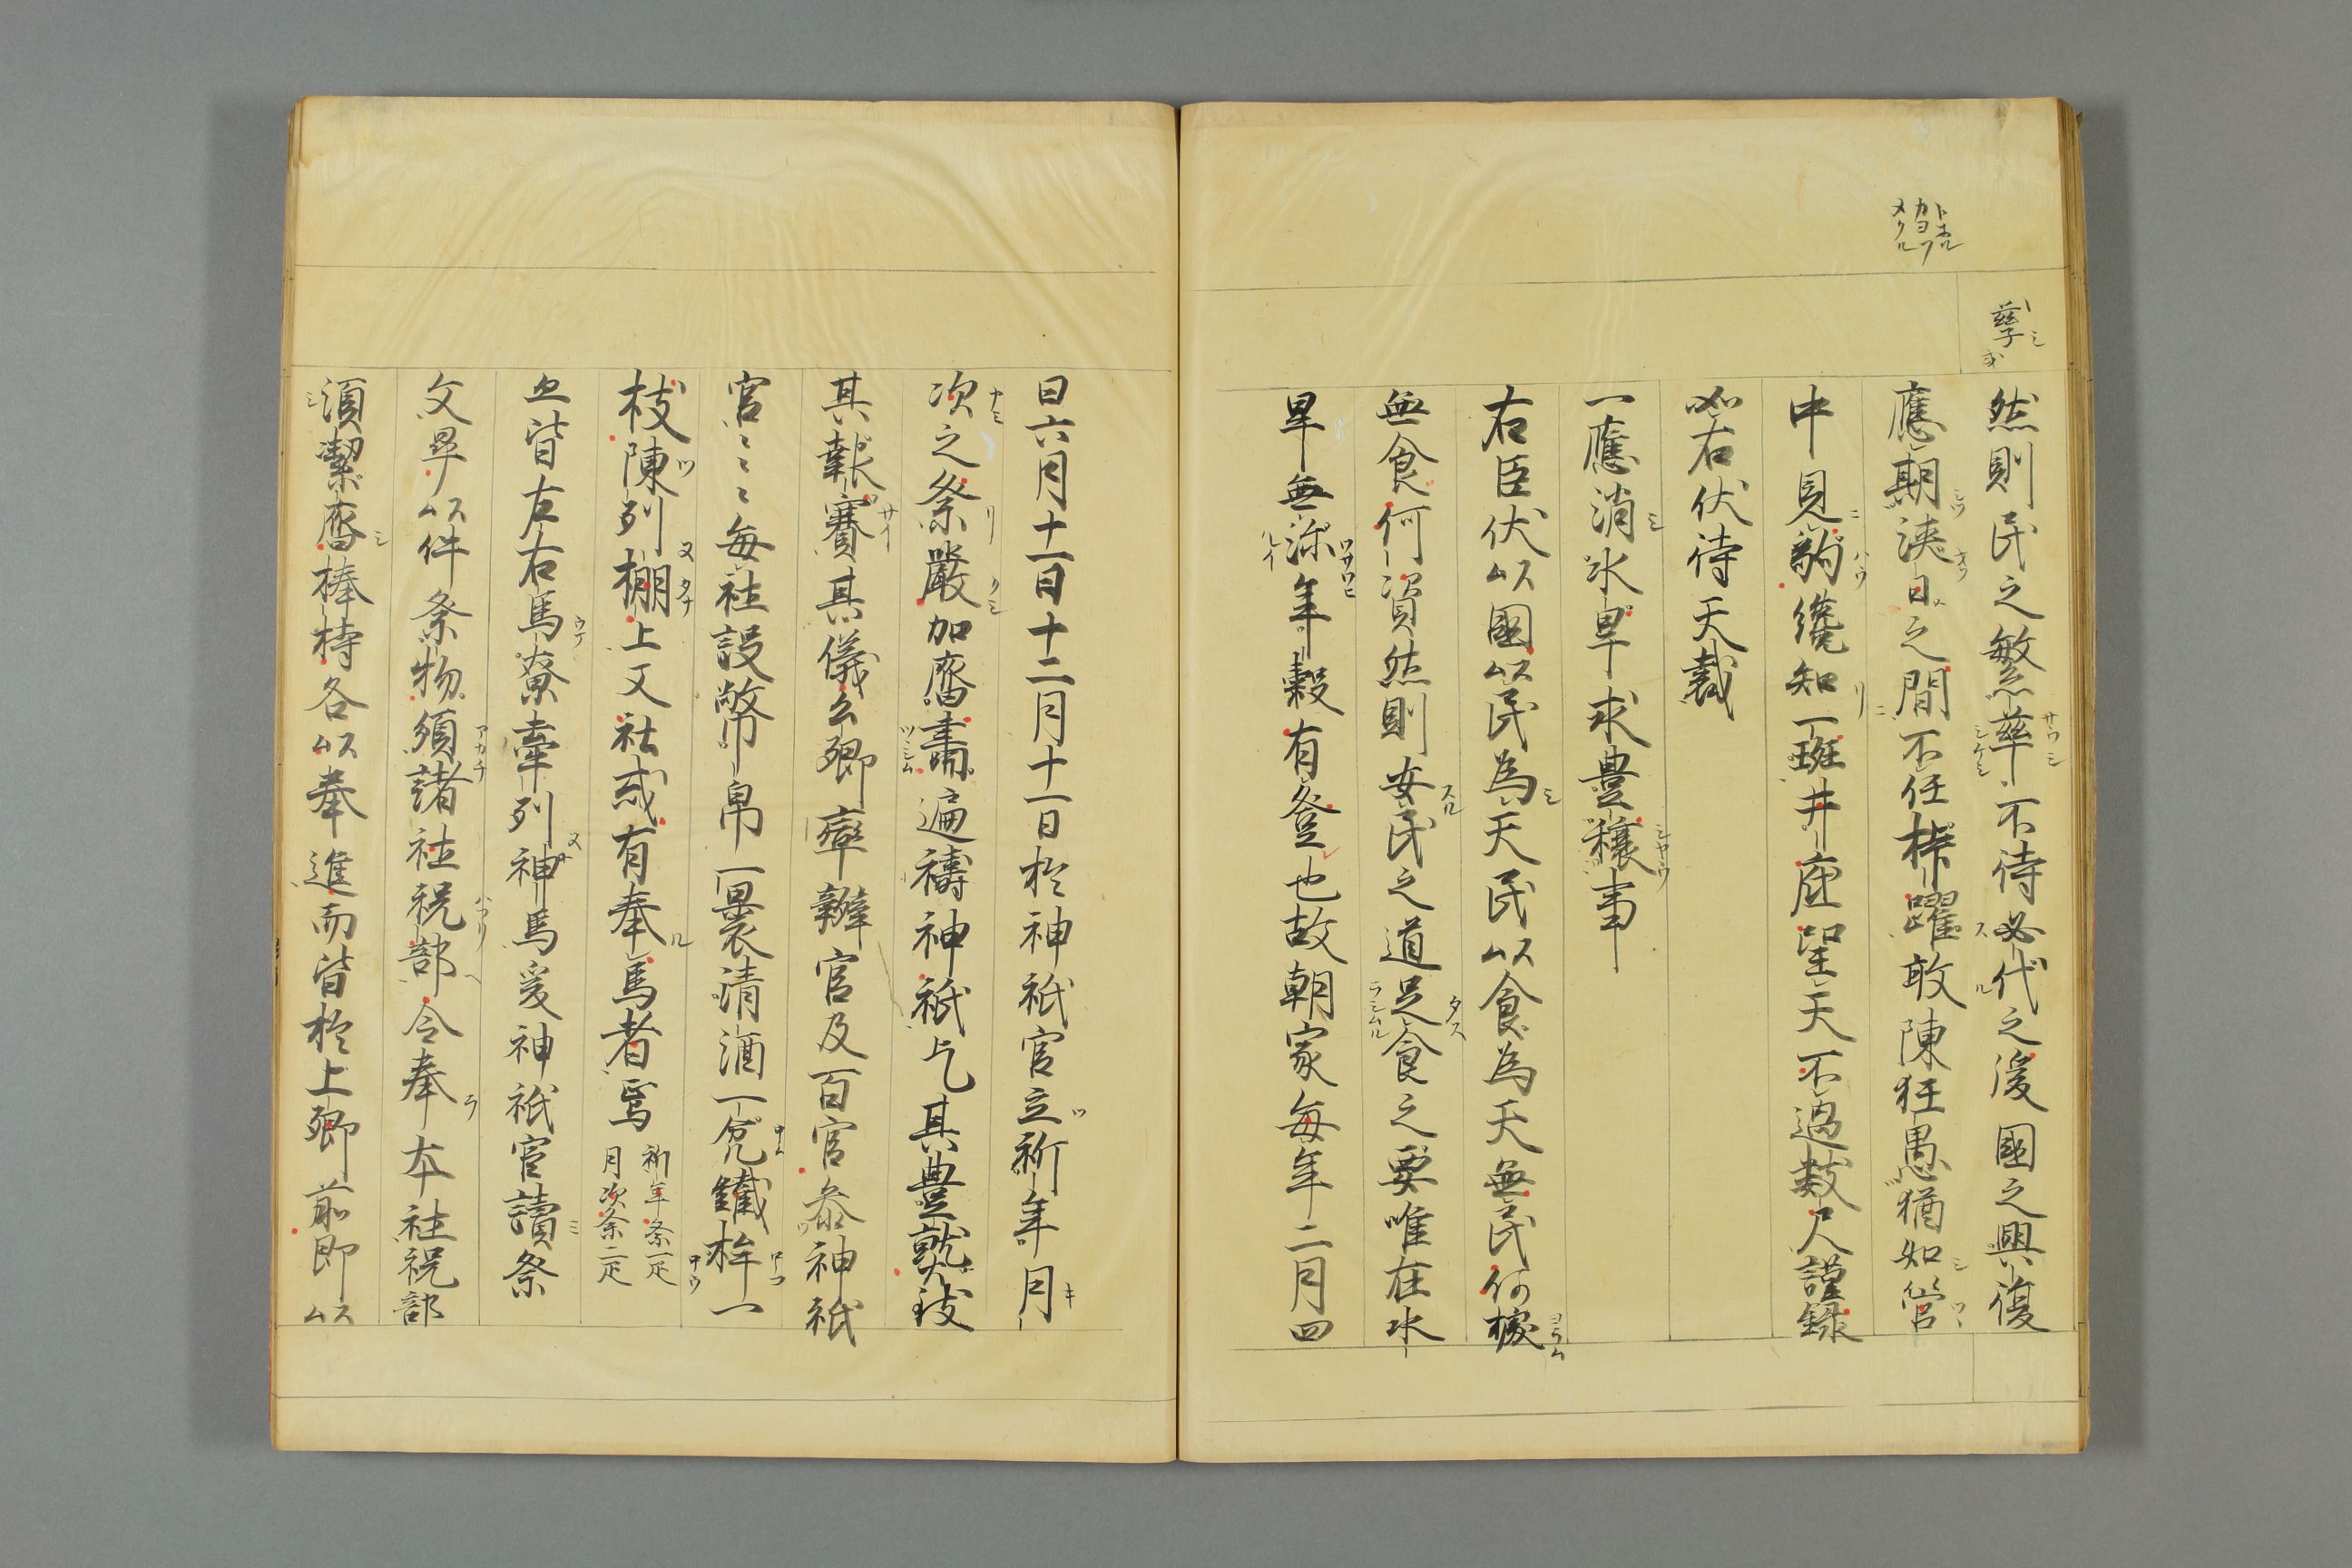 然則民之繁孳不待必代之後國之興復
應期浹日之間不任抃躍敢陳狂愚猶如管
中見豹纔知一班井底望天不過數尺謹錄
如右伏待天裁
一應消水旱求豊穰事
右臣伏以國以民為天民以食為天無民何據
無食何資然則安民之道足食之要唯在水
旱無沴年穀有登也故朝家每年二月四
日六月十一日十二月十一日於神祇官立祈年月
次之祭嚴加齋肅遍禱神祇乞其豊熟致
其報賽其儀公卿率辨官及百官参神祇
官〻〻每社設幣帛一裹清酒一瓮鐵桙一
枝陳列棚上又社或有奉馬者焉
祈年祭一疋
月次祭二疋
亦皆左右馬寮牽列神馬爰神祇官讀祭
文畢以件祭物頒諸社祝部令奉本社祝部
須潔齋捧持各以奉進而皆於上卿前即以
孳
トホル
カヨフ
メクル